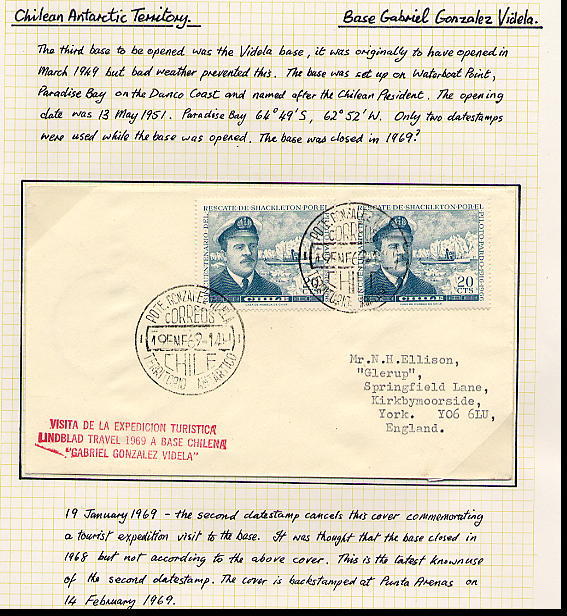 Chilean Antarctic Territory. Base Gabriel Gonzalez Videla.
The third base to be opened was the Videla base, it was originally to have opened in
March 1949 but bad weather prevented this. The base was set up on Waterboat Point,
Paradise Bay on the Danco Coast and named after the Chilean President. The opening
date was 13 May 1951. Paradise Bay 64° 49' S, 62° 52' W. Only two datestamps
were used while the base was opened. The base was closed in 1969?
RESCATE DE SHACKLETON POR EL
RESCATE DE SHACKLETON POR EL PILOTO PARDO 1916-1966
CINCUENTENARIO DEL
CHILE
CHILE
20
CTS
PDTE GONZALEZ
CORREOS
19 ENE 69
CHILE
PDTE. GONZALEZ VIDELA
CORREOS
19 ENE 69-14
CHILE
TERRITORIO ANTARTICO
Mr.N.H.Ellison,
"Glerup",
Springfield Lane,
Kirkbymoorside,
York. YO6 6LU,
England.
VISITA DE LA EXPEDICION TURISTICA
LINDBLAD TRAVEL 1969 A BASE CHILENA
"GABRIEL GONZALEZ VIDELA"
19 January 1969 - the second datestamp cancels this cover commemorating
a tourist expedition visit to the base. It was thought that the base closed in
1968 but not according to the above cover. This is the latest known use
of the second datestamp. The cover is backstamped at Punta Arenas on
14 February 1969.